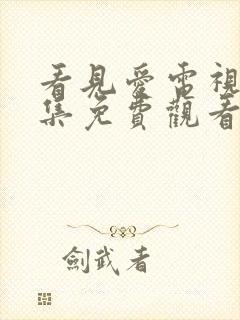 看見愛電視
集免費觀看
劍武者